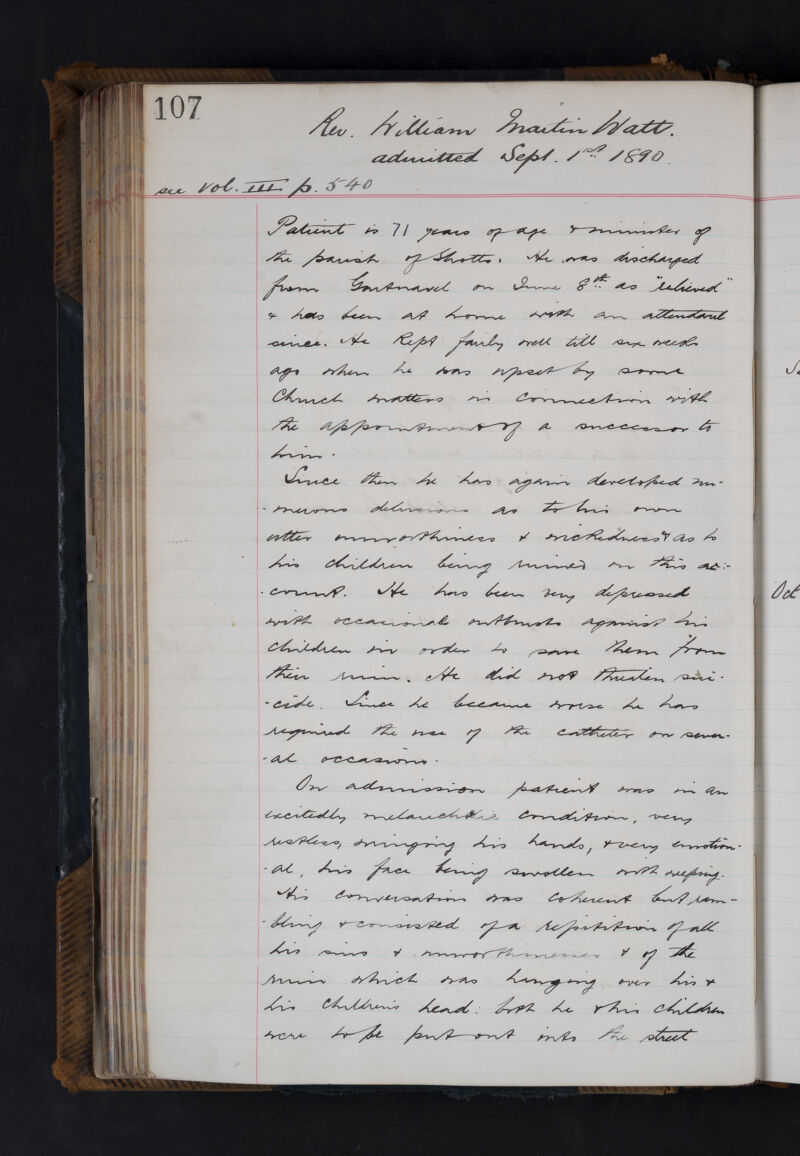 107
Rev. William Martin Watt.
admitted Sept. 1st 1890.
see vol. III p. 540
Patient is 71 years of age & minister of
the parish of Shotts. He was discharged
from Gartnavel on June 8th as "relieved"
& has been at home with an attendant
since. He kept fairly well till six weeks
ago when he was upset by some
Church matters in connection with
the appointment of a successor to
him.
Since then he has again developed nu-
-merous delusions as to his own
utter unworthiness & wickedness & as to
his children being ruined on this ac-
-count. He has been very depressed
with occasional outbursts against his
children in order to save them from
their ruin. He did not threaten sui-
-cide. Since he became worse he has
required the use of the catheter on sever-
-al occasions.
On admission patient was in an
excitedly melancholic condition, very
restless, wringing his hands, & very emotion-
-al, his face being swollen with weeping.
His conversation was coherent but ram-
-bling & consisted of a repitition of all
his sins & unworthinesses & of the
ruin which was hanging over his &
his children's head: both he & his children
were to be put out into the street
Oct